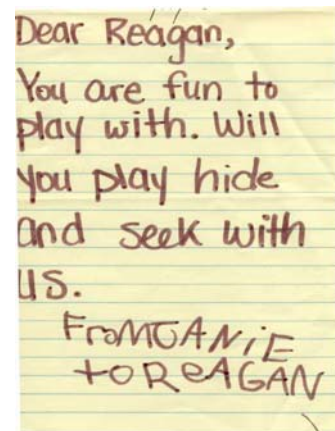 Dear Reagan,
You are fun to
play with. Will
you play hide
and seek with
us.
FroMJANiE
toReAGAN